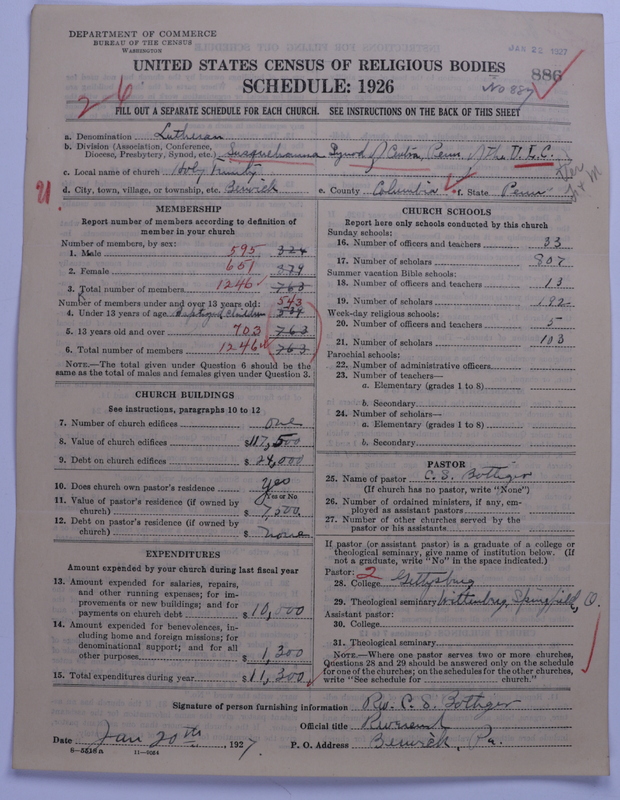 DEPARTMENT OF COMMERCE
BUREAU OF THE CENSUS
WASHINGTON
JAN 22 1927
UNITED STATES CENSUS OF RELIGIOUS BODIES
SCHEDULE: 1926
886
No 887
2-6
FILL OUT A SEPARATE SCHEDULE FOR EACH CHURCH. SEE INSTRUCTIONS ON THE BACK OF THIS SHEET
a. Denomination Lutheran
b. Division (Association, Conference, Diocese, Presbytery, Synod, etc.) Susquehanna Synod of Central Penn. of the U.L.C.
c. Local name of church Holy Trinity
d. City, town, village, or township, etc. Berwick e. County Columbia f. State Penn
MEMBERSHIP
Report number of members according to definition of member in your church
Number of members, by sex:
1. Male 595 324
2. Female 651
3. Total number of members 1246 763
Number of members under and over 13 years old:
4. Under 13 years of age. Baptized Children 543
5. 13 years old and over 703 763
6. Total number of members 1246 763
NOTE.—The total given under Question 6 should be the same as the total of males and females given under Question 3.
CHURCH BUILDINGS
See instructions, paragraphs 10 to 12
7. Number of church edifices one
8. Value of church edifices $117,500
9. Debt on church edifices $24,000
10. Does church own pastor's residence yes
Yes or No
11. Value of pastor's residence (if owned by church) $7,500
12. Debt on pastor's residence (if owned by church) $none
EXPENDITURES
Amount expended by your church during last fiscal year
13. Amount expended for salaries, repairs, and other running expenses; for improvements or new buildings; and for payments on church debt $10,000
14. Amount expended for benevolences, including home and foreign missions; for denominational support; and for all other purposes $1,300
15. Total expenditures during year $11,300
CHURCH SCHOOLS
Report here only schools conducted by this church
Sunday schools:
16. Number of officers and teachers 33
17. Number of scholars 807
Summer vacation Bible schools:
18. Number of officers and teachers 13
19. Number of scholars 182
Week-day religious schools:
20. Number of officers and teachers 5
21. Number of scholars 103
Parochial schools:
22. Number of administrative officers
23. Number of teachers—
a. Elementary (grades 1 to 8)
b. Secondary
24. Number of scholars—
a. Elementary (grades 1 to 8)
b. Secondary
PASTOR
25. Name of pastor C. S. Bottiger
(If church has no pastor, write "None")
26. Number of ordained ministers, if any, employed as assistant pastors
27. Number of other churches served by the pastor or his assistants
If pastor (or assistant pastor) is a graduate of a college or theological seminary, give name of institution below. (If not a graduate, write "No" in the space indicated.)
Pastor: 2
28. College Gettysburg
29. Theological seminary Wittenberg, Springfield, O.
Assistant pastor:
30. College
31. Theological seminary
NOTE.—Where one pastor serves two or more churches, Questions 28 and 29 should be answered only on the schedule for one of the churches; on the schedules for the other churches, write "See schedule for church."
Signature of person furnishing information Rev. C. S. Bottiger
Official title Reverend
Date Jan 20th, 1927. P. O. Address Berwick, Pa.
8-5518a 11-9064